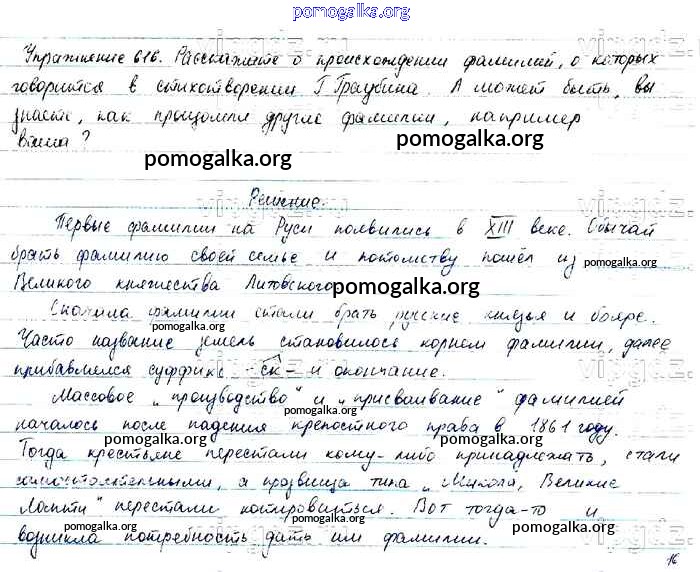 pomogalka.org
Упражнение 616. Расскажите о происхождении фамилий, о которых
говорится в стихотворении Г. Граубина. А может быть, вы
знаете, как произошли другие фамилии, например
ваша?
pomogalka.org pomogalka.org
Решение.
Первые фамилии на Руси появились в XIII веке. Обычай
брать фамилию своей семье и потомству пошёл из
pomogalka.org
Великого княжества Литовского.
pomogalka.org
Сначала фамилии стали брать русские князья и бояре.
pomogalka.org
Часто название земель становилось корнем фамилии, далее
прибавлялся суффикс -ск- и окончание.
pomogalka.org
Массовое „производство" и „присваивание" фамилией
началось после падения крепостного права в 1861 году.
pomogalka.org pomogalka.org
Тогда крестьяне перестали кому-либо принадлежать, стали
самостоятельными, а прозвища типа „Микола, Великие
Лапти" перестали котироваться. Вот тогда-то и
pomogalka.org pomogalka.org
возникла потребность дать им фамилии.
16